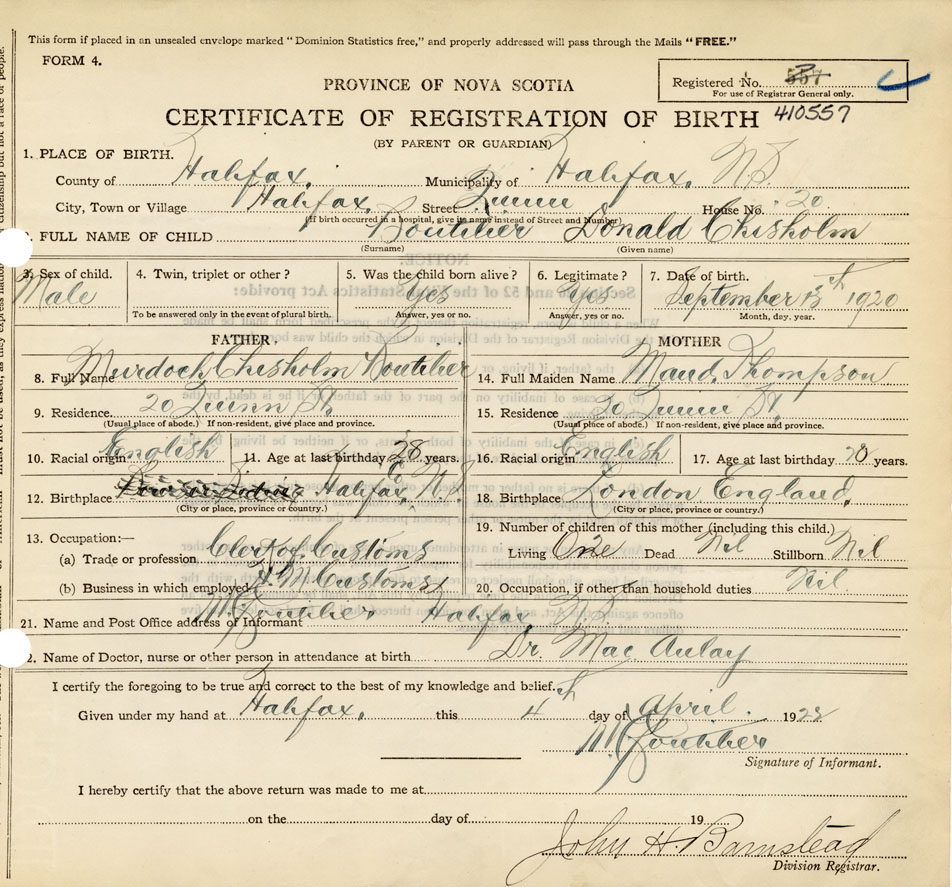 This form if placed in an unsealed envelope marked "Dominion Statistics free," and properly addressed will pass through the Mails "FREE."
FORM 4.
PROVINCE OF NOVA SCOTIA
Registered No. 557
For use of Registrar General only.
410557
CERTIFICATE OF REGISTRATION OF BIRTH
(BY PARENT OR GUARDIAN)
1. PLACE OF BIRTH.
County of Halifax. Municipality of Halifax. N.S.
City, Town or Village Halifax Street Quinn House No. 20
(If birth occurred in a hospital, give its name instead of Street and Number)
FULL NAME OF CHILD Boutilier Donald Chisholm
(Surname) (Given name)
3. Sex of child. 4. Twin, triplet or other? 5. Was the child born alive? 6. Legitimate? 7. Date of birth.
Male Yes Yes September 13th 1920
To be answered only in the event of plural birth. Answer, yes or no. Answer, yes or no. Month, day, year.
FATHER. MOTHER
8. Full Name Murdock Chisholm Boutilier 14. Full Maiden Name Maud Thompson
9. Residence. 20 Quinn St. 15. Residence 20 Quinn St.
(Usual place of abode.) If non-resident, give place and province. (Usual place of abode.) If non-resident, give place and province.
10. Racial origin English 11. Age at last birthday 28 years. 16. Racial origin English 17. Age at last birthday 28 years.
12. Birthplace Halifax, N.S. 18. Birthplace London England.
(City or place, province or country.) (City or place, province or country.)
13. Occupation:— 19. Number of children of this mother (including this child.)
(a) Trade or profession Clerk of Customs Living One Dead Nil Stillborn Nil
(b) Business in which employed H.M. Customs 20. Occupation, if other than household duties Nil.
21. Name and Post Office address of Informant M Boutilier Halifax, N.S.
2. Name of Doctor, nurse or other person in attendance at birth Dr. Mac Aulay
I certify the foregoing to be true and correct to the best of my knowledge and belief.
Given under my hand at Halifax. this 4th day of April. 1922
M Boutilier
Signature of Informant.
I hereby certify that the above return was made to me at
on the day of 19
John H. Barnstead
Division Registrar.